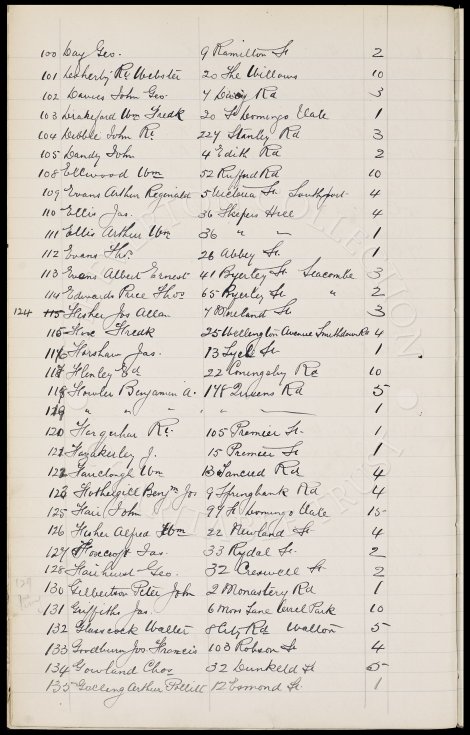 100 Day Geo. 9 Ramilton St 2
101 Rt Webster 20 The Willows 10
102 Davies John Geo 7 Rd 3
103 Drakeford Wm Fredk 20 St Domingo Vale 1
104 Dibble John Rt. 224 Stanley Rd 3
105 Dandy John 4 Edith Rd 2
108 Ellwood Wm 52 Rufford Rd 10
109 Evans Arthur Reginald 5 Victoria St. Southport 4
110 Ellis Jas. 36 Skipers Hill 4
111 Ellis Arthur Wm 36 " " 1
112 Evans Thos. 28 Abbey St. 1
113 Evans Albert Ernest 41 Byerley St Seacombe 3
114 Edwards Price Thos 65 Byerley St " 2
124 115 Fisher Jos Allan 7 St 3
115 Fredk 25 Wellington Avenue Smithdown Rd 4
116 Forshaw Jas. 13 St. 1
117 Finley Ed 22 Coningsby Rd 10
118 Fowler Benjamin A. 178 Queens Rd 5
119 " " " " " " 1
120 Rt. 105 Premier St. 1
121 Fazakerley J. 15 Premier St 1
122 Fairclough Wm 13 Tancred Rd 4
123 Fothergill Benjm Jos. 9 Springbank Rd 4
125 Fair John 97 St Domingo Vale 15
126 Fisher Alfred Wm 22 Newland St 4
127 Foxcroft Jas. 33 Rydal St. 2
128 Fairhurst Geo. 32 Creswell St 2
130 Gilbertson Peter John 2 Monastery Rd 1
131 Griffiths Jas. 6 Moss Lane Orrel Park 10
132 Glasscock Walter 8 City Rd Walton 5
133 Goodburn Jos Francis 103 Robson St 4
134 Gowland Chas 32 Dunkeld St 5
135 Gosling Arthur Pollitt 12 Esmond St. 1